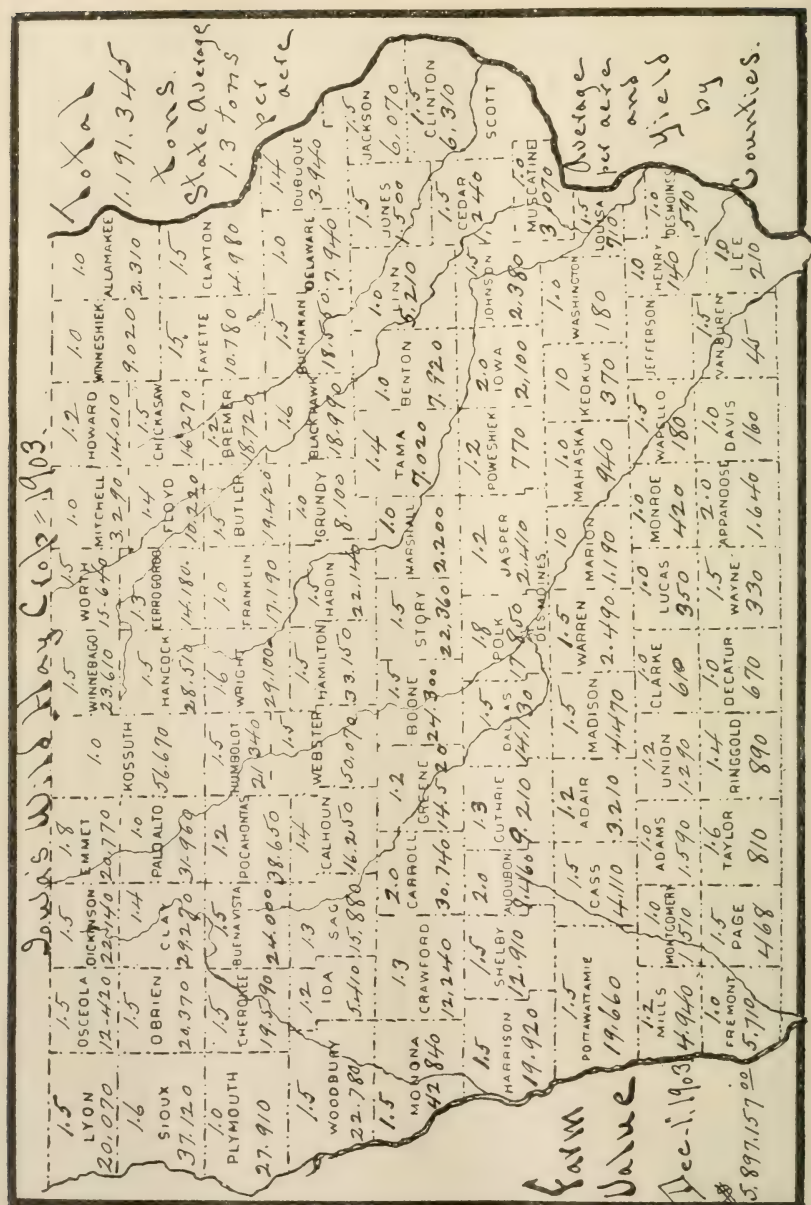 Iowa's Wild Hay Crop = 1903.
Total
1.191.345
Tons.
State Average
1.3 tons
per
acre
1.5
LYON
20,070
1.5
OSCEOLA
12.420
1.5
DICKINSON
22.140
1.8
EMMET
20.770
1.0
KOSSUTH
56.670
1.5
WINNEBAGO
23.610
1.5
WORTH
15.640
1.0
MITCHELL
3.290
1.2
HOWARD
14.010
1.0
WINNESHIEK
9.020
1.0
ALLAMAKEE
2.310
1.6
SIOUX
37.120
1.5
OBRIEN
20.370
1.4
CLAY
29.270
1.0
PALO ALTO
31.960
1.5
HANCOCK
28.510
1.3
CERRO GORDO
14.180
1.4
FLOYD
10.220
1.5
CHICKASAW
16.270
1.5
FAYETTE
10.780
1.5
CLAYTON
4.980
1.0
PLYMOUTH
27.910
1.5
CHEROKEE
19.590
1.5
BUENA VISTA
24.000
1.2
POCAHONTAS
38.650
1.5
HUMBOLDT
21.340
1.6
WRIGHT
29.100
1.0
FRANKLIN
17.190
1.5
BUTLER
19.420
1.2
BREMER
18.720
1.5
WOODBURY
22.780
1.2
IDA
5.410
1.3
SAC
15.880
1.4
CALHOUN
16.250
1.5
WEBSTER
50.070
1.5
HAMILTON
33.150
1.5
HARDIN
22.140
1.0
GRUNDY
8.100
1.6
BLACKHAWK
18.990
1.5
BUCHANAN
18.550
1.0
DELAWARE
7.940
1.4
DUBUQUE
3.940
1.5
MONONA
42.840
1.3
CRAWFORD
12.240
2.0
CARROLL
30.740
1.2
GREENE
14.520
1.5
BOONE
24.300
1.5
STORY
22.360
1.0
MARSHALL
2.200
1.4
TAMA
7.020
1.0
BENTON
7.920
1.0
LINN
5,210
1.5
JONES
1.500
1.5
JACKSON
6,070
1.5
CLINTON
6,310
1.5
HARRISON
19.920
1.5
SHELBY
12.910
2.0
AUDUBON
8.460
1.3
GUTHRIE
9.210
1.5
DALLAS
14.130
1.8
POLK
17.850
DES MOINES
1.2
JASPER
2.410
1.2
POWESHIEK
770
2.0
IOWA
2,100
1.5
JOHNSON
2.380
1.5
CEDAR
1,240
SCOTT
1.0
MUSCATINE
3,070
1.5
POTTAWATTAMIE
19.660
1.5
CASS
4.110
1.2
ADAIR
3.210
1.5
MADISON
4.470
1.5
WARREN
2.490
10
MARION
1.190
1.0
MAHASKA
940
10
KEOKUK
370
1.0
WASHINGTON
180
1.5
LOUISA
710
1.2
MILLS
4.940
1.0
MONTGOMERY
1.510
1.0
ADAMS
1.590
1.2
UNION
1.290
1.0
CLARKE
610
1.0
LUCAS
350
1.0
MONROE
420
1.5
WAPELLO
180
JEFFERSON
1.0
HENRY
140
1.0
DES MOINES
590
1.0
FREMONT
5.710
1.5
PAGE
468
1.6
TAYLOR
810
1.4
RINGGOLD
890
1.0
DECATUR
670
1.5
WAYNE
330
2.0
APPANOOSE
1.640
1.0
DAVIS
160
1.5
VAN BUREN
45
1.0
LEE
210
Farm
Value
Dec-1.1903
$
5.897.157 00
Average
per acre
and
Yield
by
Counties.